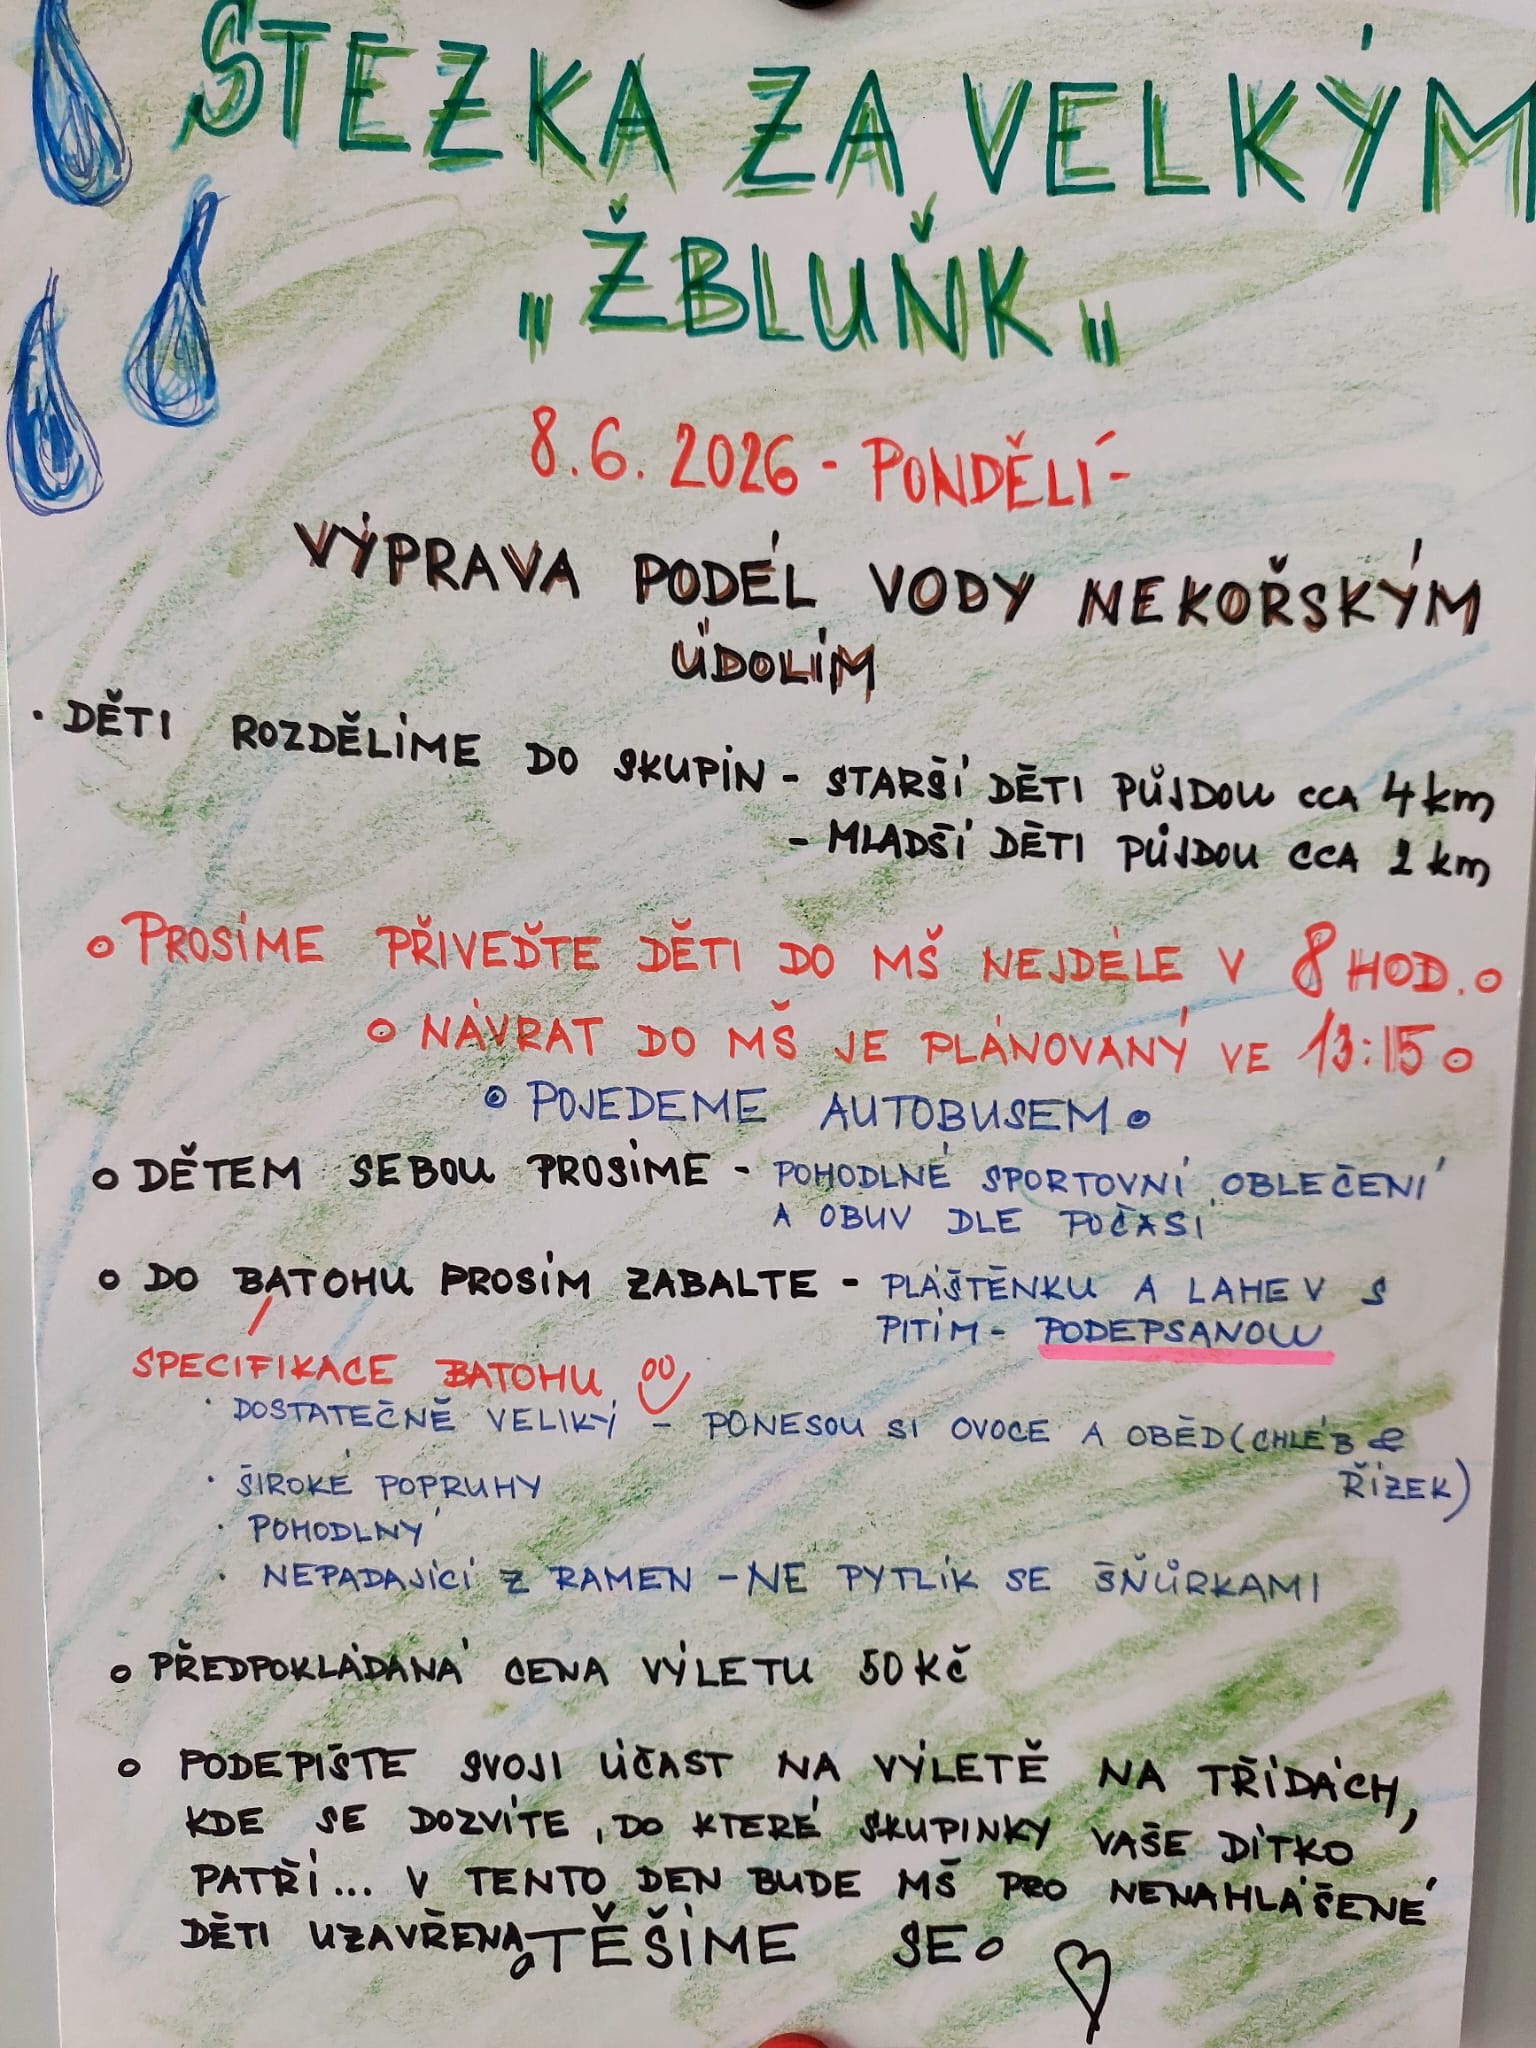 STEZKA ZA VELKÝM
„ŽBLUŇK„
8.6.2026 - PONDĚLÍ -
VÝPRAVA PODÉL VODY NEKOŘSKÝM
ÚDOLÍM
· DĚTI ROZDĚLÍME DO SKUPIN - STARŠÍ DĚTI PŮJDOU CCA 4 km
- MLADŠÍ DĚTI PŮJDOU CCA 2 km
o PROSÍME PŘIVEĎTE DĚTI DO MŠ NEJDÉLE V 8 HOD. o
o NÁVRAT DO MŠ JE PLÁNOVANÝ VE 13:15 o
o POJEDEME AUTOBUSEM o
o DĚTEM SEBOU PROSÍME - POHODLNÉ SPORTOVNÍ OBLEČENÍ
A OBUV DLE POČASÍ
o DO BATOHU PROSÍM ZABALTE - PLÁŠTĚNKU A LAHEV S
PITÍM - PODEPSANOU
SPECIFIKACE BATOHU
· DOSTATEČNĚ VELIKÝ - PONESOU SI OVOCE A OBĚD (CHLÉB &
ŘÍZEK)
· ŠIROKÉ POPRUHY
· POHODLNÝ
· NEPADAJÍCÍ Z RAMEN - NE PYTLÍK SE ŠŇŮRKAMI
o PŘEDPOKLÁDANÁ CENA VÝLETU 50 Kč
o PODEPIŠTE SVOJI ÚČAST NA VÝLETĚ NA TŘÍDÁCH,
KDE SE DOZVÍTE, DO KTERÉ SKUPINKY VAŠE DÍTKO
PATŘÍ... V TENTO DEN BUDE MŠ PRO NENAHLÁŠENÉ
DĚTI UZAVŘENA. TĚŠÍME SE o